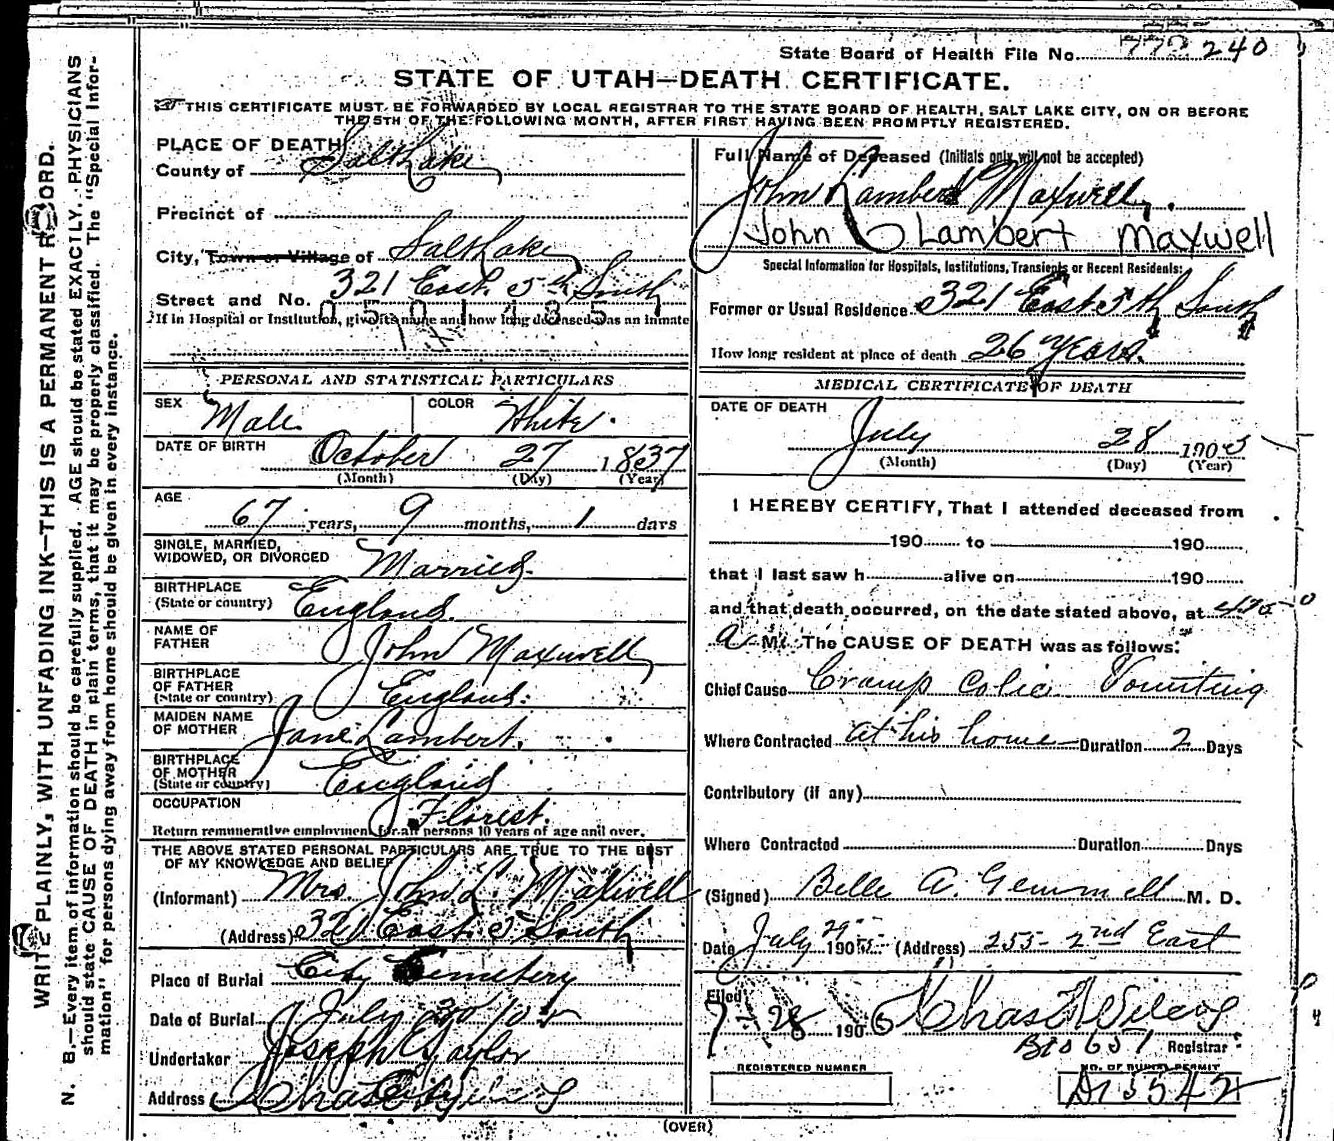 State Board of Health File No. 240
STATE OF UTAH—DEATH CERTIFICATE.
THIS CERTIFICATE MUST BE FORWARDED BY LOCAL REGISTRAR TO THE STATE BOARD OF HEALTH, SALT LAKE CITY, ON OR BEFORE
THE 5TH OF THE FOLLOWING MONTH, AFTER FIRST HAVING BEEN PROMPTLY REGISTERED.
WRITE PLAINLY, WITH UNFADING INK—THIS IS A PERMANENT RECORD.
N. B.—Every item of information should be carefully supplied. AGE should be stated EXACTLY. PHYSICIANS
should state CAUSE OF DEATH in plain terms, that it may be properly classified. The "Special Infor-
mation" for persons dying away from home should be given in every instance.
PLACE OF DEATH
County of Salt Lake
Precinct of
City, Town or Village of Salt Lake
Street and No. 321 East 5th South
0501435
If in Hospital or Institution, give its name and how long deceased was an inmate
PERSONAL AND STATISTICAL PARTICULARS
SEX Male COLOR White.
DATE OF BIRTH October 27 1837
(Month) (Day) (Year)
AGE 67 years, 9 months, 1 days
SINGLE, MARRIED,
WIDOWED, OR DIVORCED Married.
BIRTHPLACE
(State or country) England.
NAME OF
FATHER John Maxwell
BIRTHPLACE
OF FATHER
(State or country) England.
MAIDEN NAME
OF MOTHER Jane Lambert.
BIRTHPLACE
OF MOTHER
(State or country) England
OCCUPATION Florest.
Return remunerative employment for all persons 10 years of age and over.
THE ABOVE STATED PERSONAL PARTICULARS ARE TRUE TO THE BEST
OF MY KNOWLEDGE AND BELIEF
(Informant) Mrs. John L. Maxwell
(Address) 321 East 5 South
Place of Burial City Cemetery
Date of Burial July 30
Undertaker Joseph Taylor
Address City
Full Name of Deceased (Initials only will not be accepted)
John Lambert Maxwell.
John Lambert Maxwell
Special Information for Hospitals, Institutions, Transients or Recent Residents:
Former or Usual Residence 321 East 5th South
How long resident at place of death 26 Years.
MEDICAL CERTIFICATE OF DEATH
DATE OF DEATH
July 28 1905
(Month) (Day) (Year)
I HEREBY CERTIFY, That I attended deceased from
190 to 190
that I last saw h alive on 190
and that death occurred, on the date stated above, at
a M. The CAUSE OF DEATH was as follows:
Chief Cause Cramp Colic Vomiting
Where Contracted at his home Duration 2 Days
Contributory (if any)
Where Contracted Duration Days
(Signed) Belle A. Gemmell M. D.
Date July 29 1905 (Address) 255 2nd East
Filed
7-28 190 Chas Wilcox
Registrar
REGISTERED NUMBER NO. OF BURIAL PERMIT
(OVER)